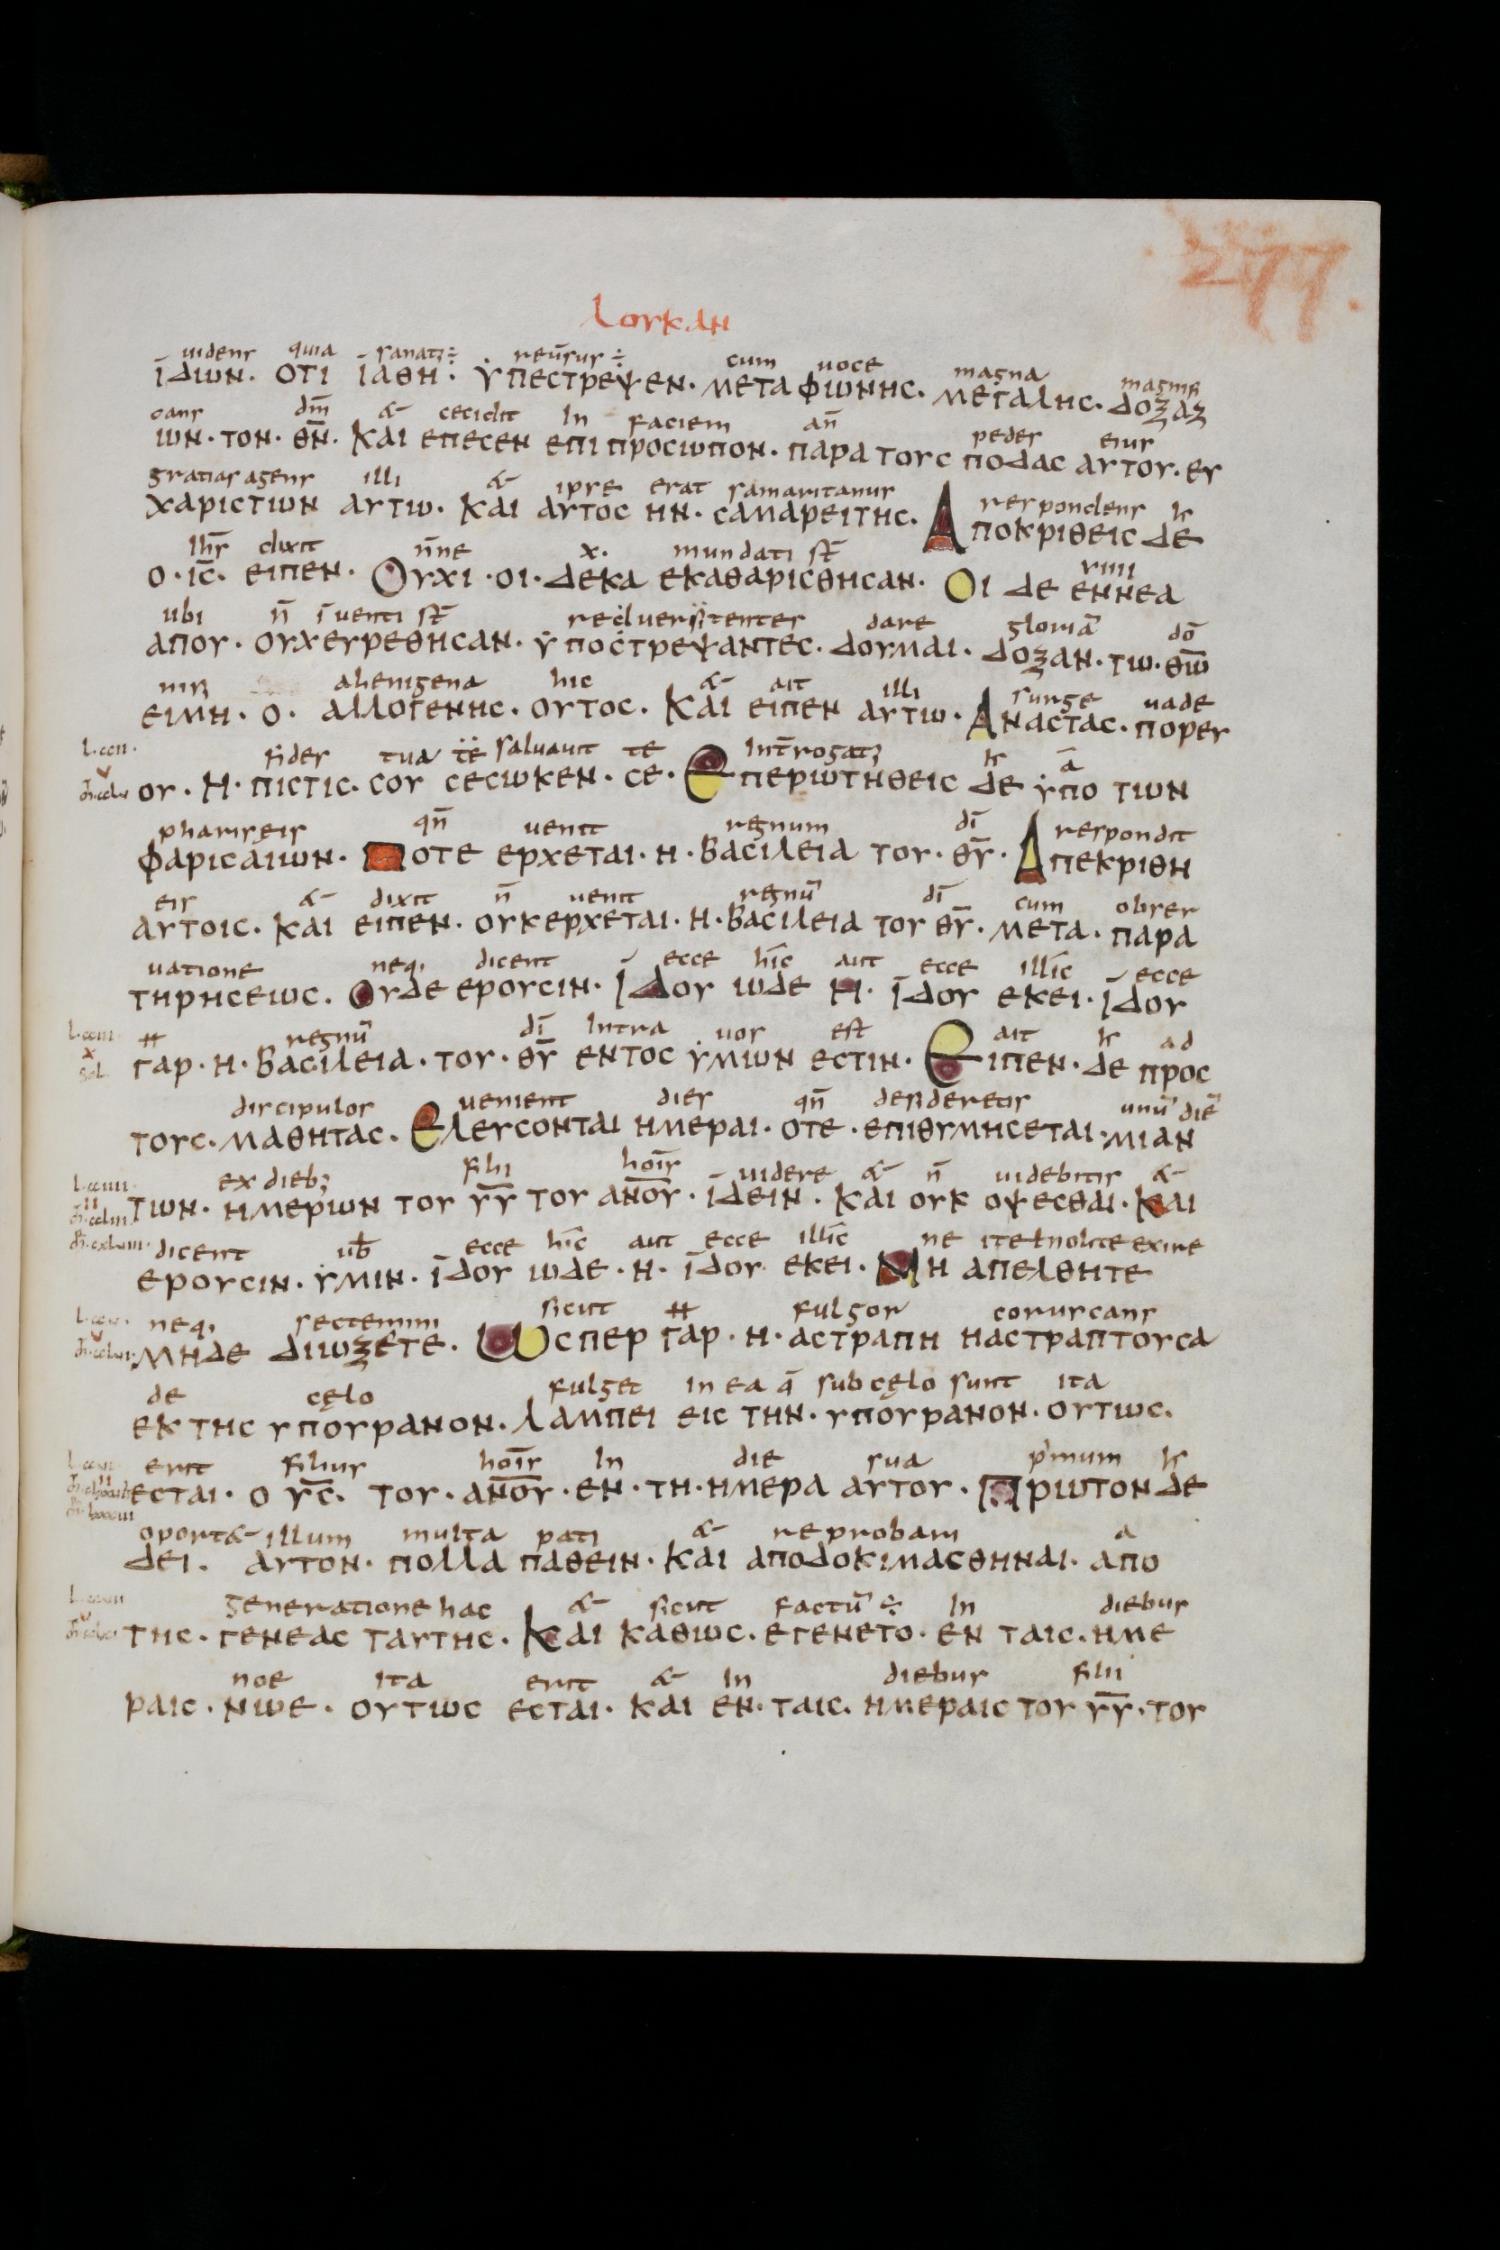 277.
λουκαν
uidens quia sanat; ÷ reūsus ÷ cum uoce magna magnifi
ϊδιων· οτι ϊαθη· ϋπεστρεψεν· μετα φωνης· μεγαλης· δοξαζ
cans dm̄ & cecidit in faciem añ pedes eius
ων· τον· θν̄· και επεσεν επι προσωπον· παρα τους ποδας αυτου· ευ
gratias agens illi & ipse erat samaritanus respondens
χαριστων αυτω· και αυτος ην· σαμαρειτης· Αποκριθεις δε
ihs̄ dixit n̄ne x· mundati st̄ viiii
ο· ις̄· ειπεν· Ουχι· οι· δεκα εκαθαρισθησαν· Οι δε εννεα
ubi n̄ īuenti st̄ dare gloriā dō
απου· ουχευρεθησαν· ϋποστρεψαντες· δουναι· δοξαν· τω· θω̄
nisi alienigena hic & ait illi surge uade
ειμη· ο· αλλογενης· ουτος· και ειπεν αυτω· Αναστας· πορευ
fides tua te saluauit te int̄rogat; ā
ου· η· πιστις· σου σεσωκεν· σε· Επερωτηθεις δε ϋπο των
phariseis qn̄ uenit regnum dī respondit
φαρισαιων· Ποτε ερχεται· η· βασιλεια του· θῡ· Απεκριθη
eis & dixit n̄ uenit regnū dī cum obser
αυτοις· και ειπεν· ουκερχεται· η· βασιλεια του θῡ· μετα· παρα
uatione neq; dicent ecce hīc aut ecce illīc ecce
τηρησεως· Ουδε ερουσιν· ϊδου ωδε η· ϊδου εκει· ϊδου
regnū dī intra uos est ait ad
γαρ· η· βασιλεια· του· θῡ εντος ϋμων εστιν· Ειπεν· δε προς
discipulos uenient dies qn̄ desideretis unū diē
τους· μαθητας· Ελευσονται ημεραι· οτε· επιθυμησεται· μιαν
ex dieb; filii hoīs uidere & n̄ uidebitis &
των· ημερων του υῡ του ανοῡ· ϊδειν· και ουκ οψεσθαι· και
dicent ub̄ ecce hīc aut ecce illīc ne ite ł nolite exire
ερουσιν· ϋμιν· ϊδου ωδε· η· ϊδου εκει· Μη απελθητε
neq; sectemini sicut fulgor coruscans
μηδε διωξετε· Ωσπερ γαρ· η· αστραπη ηαστραπτουσα
de cęlo fulget in ea q̄ sub cęlo sunt ita
εκ της υπουρανον· λαμπει εις την· υπουρανον· ουτως·
erit filius hoīs in die sua primum
εσται· ο υς̄· του· ανοῡ· εν· τη· ημερα αυτου· Πρωτον δε
oport& illum multa pati & reprobari a
δει· αυτον· πολλα παθειν· και αποδοκιμασθηναι· απο
generatione hac & sicut factū ÷ in diebus
της· γενεας ταυτης· Και καθως· εγενετο· εν ταις· ημε
noe ita erit & in diebus filii
ραις· νωε· ουτως εσται· και εν· ταις· ημεραις του υῡ· του